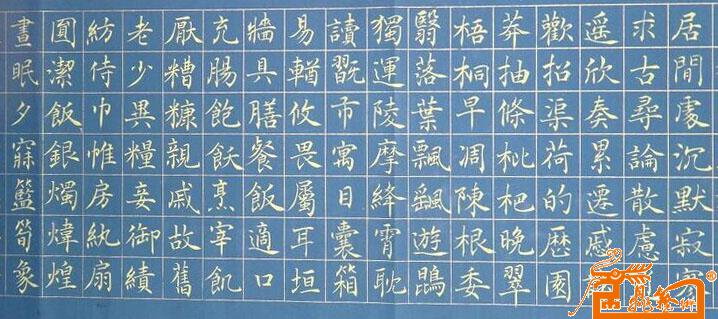 居閒處沉默寂
求古尋論散慮
遥欣奏累遷慼
歡招渠荷的歷園
莽抽條枇杷晚翠
梧桐早凋陳根委
翳落葉飄飖遊鵾
獨運陵摩絳霄耽
讀翫市寓目囊箱
易輶攸畏屬耳垣
牆具膳餐飯適口
充腸飽飫烹宰飢
厭糟糠親戚故舊
老少異糧妾御績
紡侍巾帷房紈扇
圓潔飯銀燭煒煌
晝眠夕寐籃筍象